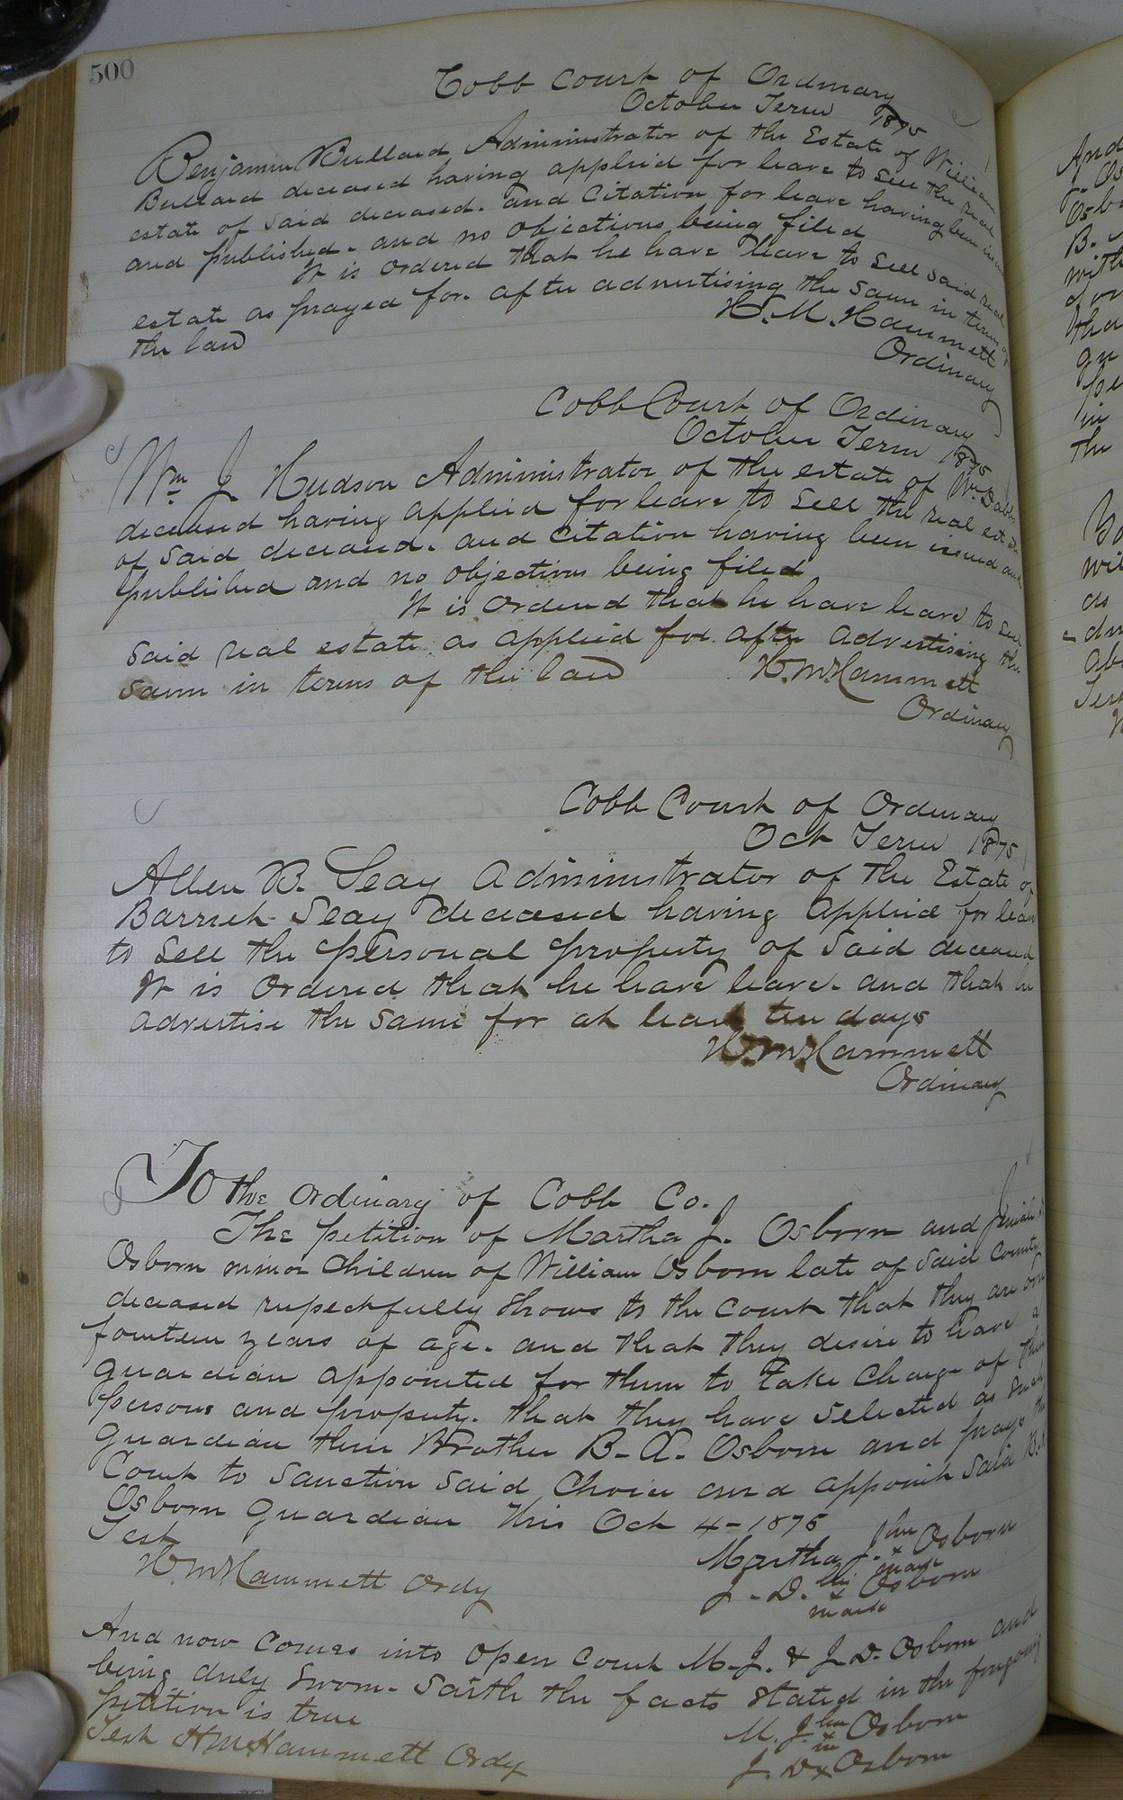 500
Cobb Court of Ordinary
October Term 1875
Benjamin Bullard Administrator of the Estate of William
Bullard deceased having applied for leave to sell the real
estate of said deceased. and Citation for leave having been
and published. and no objections being filed
It is ordered that he have leave to sell said real
estate as prayed for. after advertising the same in terms of
the law
H. M. Hammett
Ordinary
Cobb Court of Ordinary
October Term 1875
Wm J Hudson Administrator of the estate of Wm
deceased having applied for leave to sell the real estate
of said deceased. and citation having been issued and
published and no objections being filed
It is ordered that he have leave to sell
said real estate as applied for. after advertising the
same in terms of the law H. M. Hammett
Ordinary
Cobb Court of Ordinary
Oct Term 1875
Allen B. Seay Administrator of the Estate of
Seay deceased having applied for leave
to sell the personal property of said deceased
It is Ordered that he have leave. and that he
advertise the same for at least ten days
H. M. Hammett
Ordinary
To the Ordinary of Cobb Co.
The petition of Martha J. Osborn and
Osborn minor Children of William Osborn late of said County
deceased respectfully shows to the Court that they are over
fourteen years of age. and that they desire to have a
guardian appointed for them to take charge of their
persons and property. that they have selected as such
guardian their Brother B. A. Osborn and prays the
Court to sanction said choice and appoint said B. A.
Osborn guardian this Oct 4 - 1875
Test
Martha J. her x mark Osborn
H. M. Hammett Ordy
J. D. his x mark Osborn
And now comes into open Court M. J. & J. D. Osborn and
being duly sworn. saith the facts stated in the foregoing
petition is true
Test H M Hammett Ordy
M. J. her Osborn
J. D. x Osborn